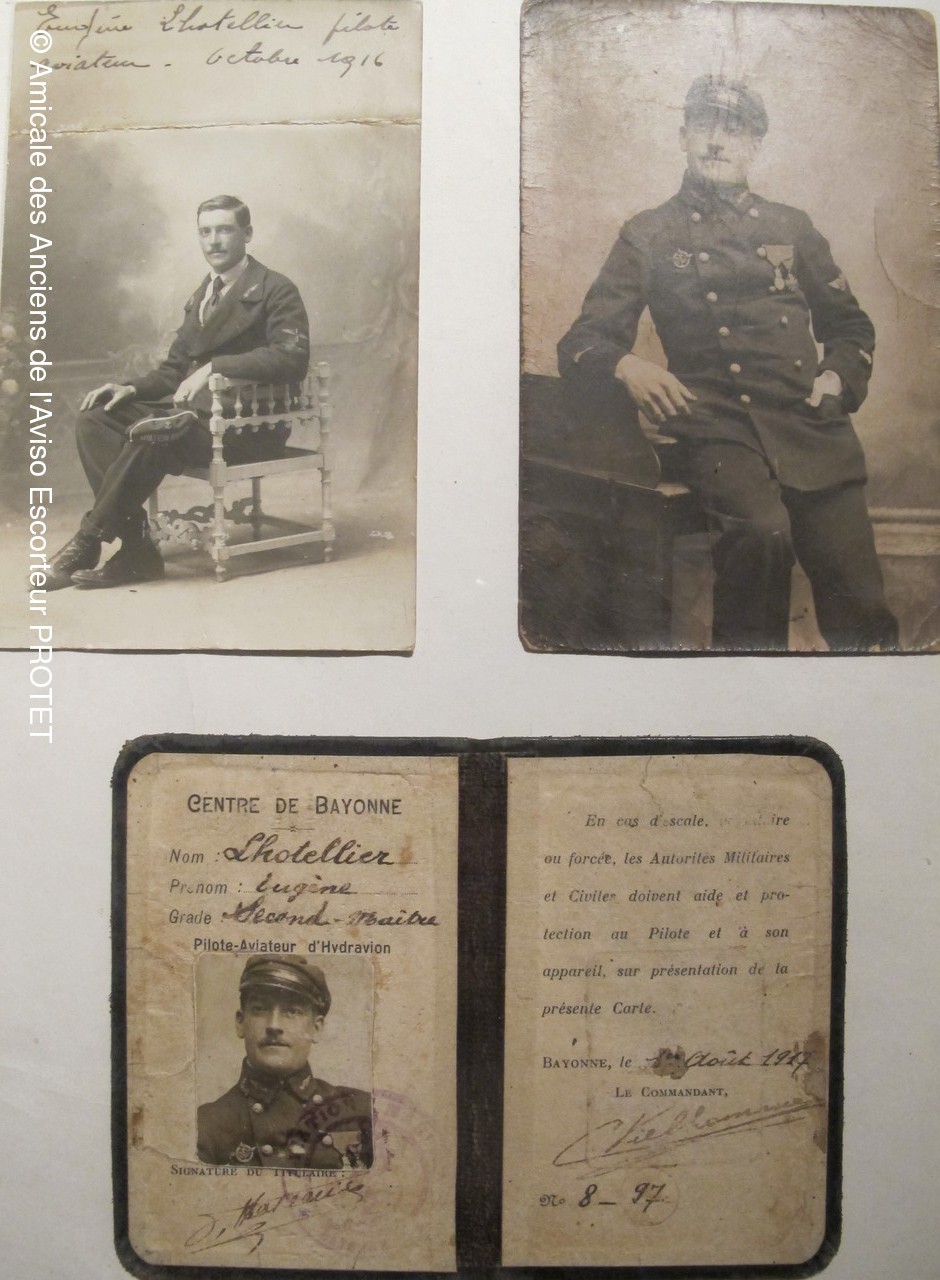 Eugène Lhotellier pilote
aviateur - Octobre 1916
© Amicale des Anciens de l'Aviso Escorteur PROTET
CENTRE DE BAYONNE
Nom : Lhotellier
Prénom : Eugène
Grade : Second-Maître
Pilote-Aviateur d'Hydravion
SIGNATURE DU TITULAIRE :
En cas d'escale,
ou forcée, les Autorités Militaires
et Civiles doivent aide et pro-
tection au Pilote et à son
appareil, sur présentation de la
présente Carte.
BAYONNE, le 1er Août 1917
LE COMMANDANT,
No 8-97